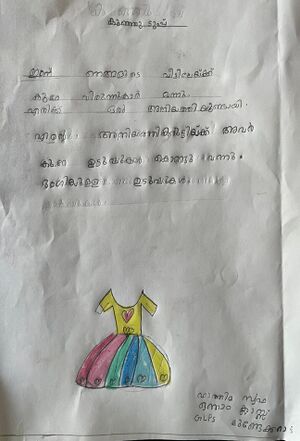 കുഞ്ഞു ടുപ്പ്
ഇന്ന് ഞങ്ങളുടെ വീട്ടിലേയ്ക്ക്
കുറേ വിരുന്നുകാർ വന്നു.
എനിക്ക് ഒരു അനിയത്തി യുണ്ടായി.
എന്റെ അനിയത്തിക്കുട്ടിയ്ക്ക് അവർ
കുറേ ഉടുപ്പുകൾ കൊണ്ടു വന്നു.
ഭംഗിയുള്ള ഉടുപ്പുകൾ.
ഫാത്തിമ
ഒന്നാം ക്ലാസ്സ്
GLPS